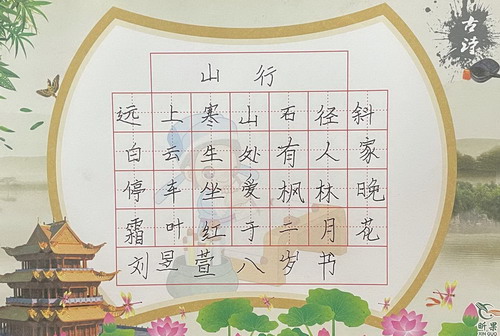 山行
远上寒山石径斜
白云生处有人家
停车坐爱枫林晚
霜叶红于二月花
刘昱萱八岁书
古诗
新果
XIN GUO